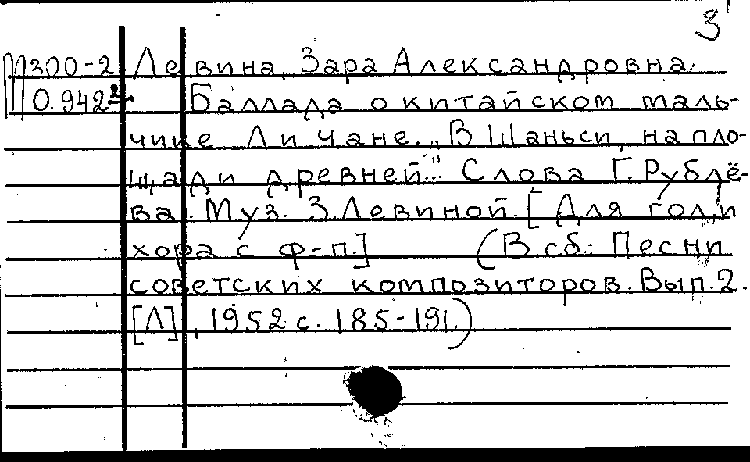 3
М300-2 Левина, Зара Александровна.
0.942² Баллада о китайском маль-
чике Ли Чане. „В Шаньси, на пло-
щади древней..." Слова Г. Рублё-
ва. Муз. З. Левиной. [Для гол. и
хора с ф-п.] (В сб.: Песни
советских композиторов. Вып. 2.
[Л], 1952. с. 185-191.)